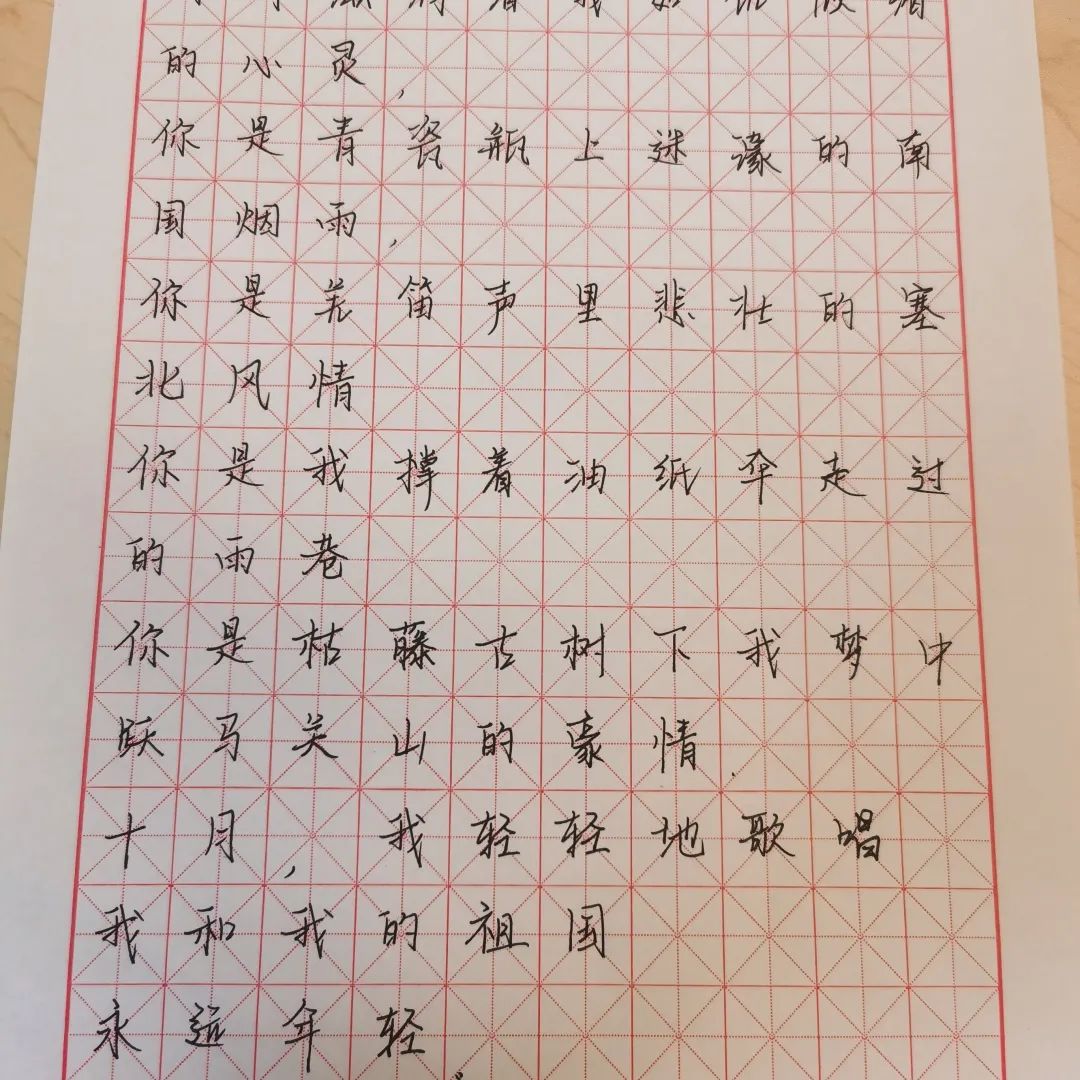 滋润着我如饥似渴
的心灵,
你是青瓷瓶上迷濛的南
国烟雨,
你是羌笛声里悲壮的塞
北风情
你是我撑着油纸伞走过
的雨巷
你是枯藤古树下我梦中
跃马关山的豪情.
十月,我轻轻地歌唱
我和我的祖国
永远年轻